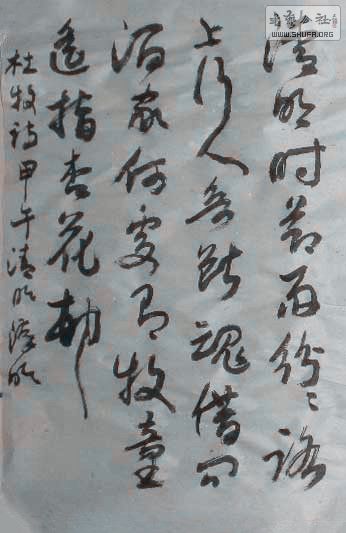 书艺公社
WWW.SHUFA.ORG
清明时节雨纷〻路
上行人欲断魂借问
酒家何处有牧童
遥指杏花村
杜牧诗甲午清明